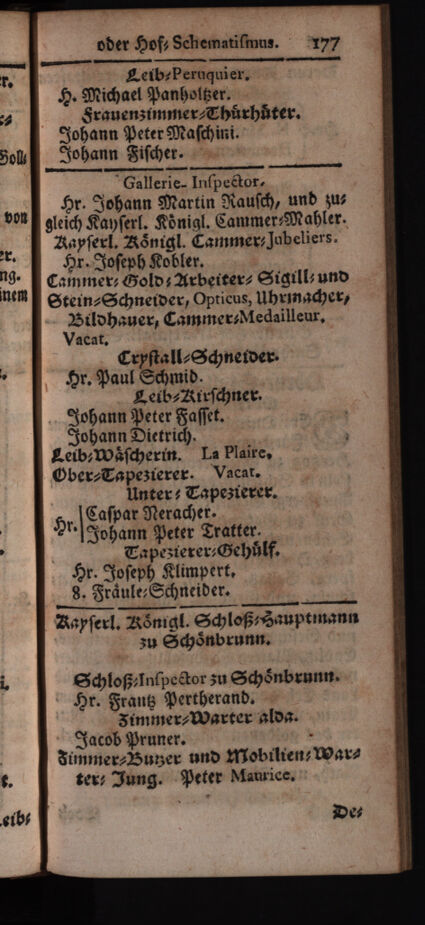 oder Hof-Schematismus. 177
Leib-Peruquier.
H. Michael Panholtzer.
Frauenzimmer-Thürhüter.
Johann Peter Maschini.
Johann Fischer.
Gallerie-Inspector.
Hr. Johann Martin Rausch, und zu-
gleich Kayserl. Königl. Cammer-Mahler.
Kayserl. Königl. Cammer-Jubeliers.
Hr. Joseph Kobler.
Cammer-Gold-Arbeiter-Sigill-und
Stein-Schneider, Opticus, Uhrmacher,
Bildhauer, Cammer-Medailleur.
Vacat.
Crystall-Schneider.
Hr. Paul Schmid.
Leib-Kirschner.
Johann Peter Fasset.
Johann Dietrich.
Leib-Wäscherin. La Plaire.
Ober-Tapezierer. Vacat.
Unter-Tapezierer.
Hr. Caspar Neracher.
Johann Peter Tratter.
Tapezierer-Gehülf.
Hr. Joseph Klimpert.
8. Fräule-Schneider.
Kayserl. Königl. Schloß-Hauptmann
zu Schönbrunn.
Schloß-Inspector zu Schönbrunn.
Hr. Frantz Pertherand.
Zimmer-Warter alda.
Jacob Pruner.
Zimmer-Butzer und Mobilien-War-
ter-Jung. Peter Maurice.
De-